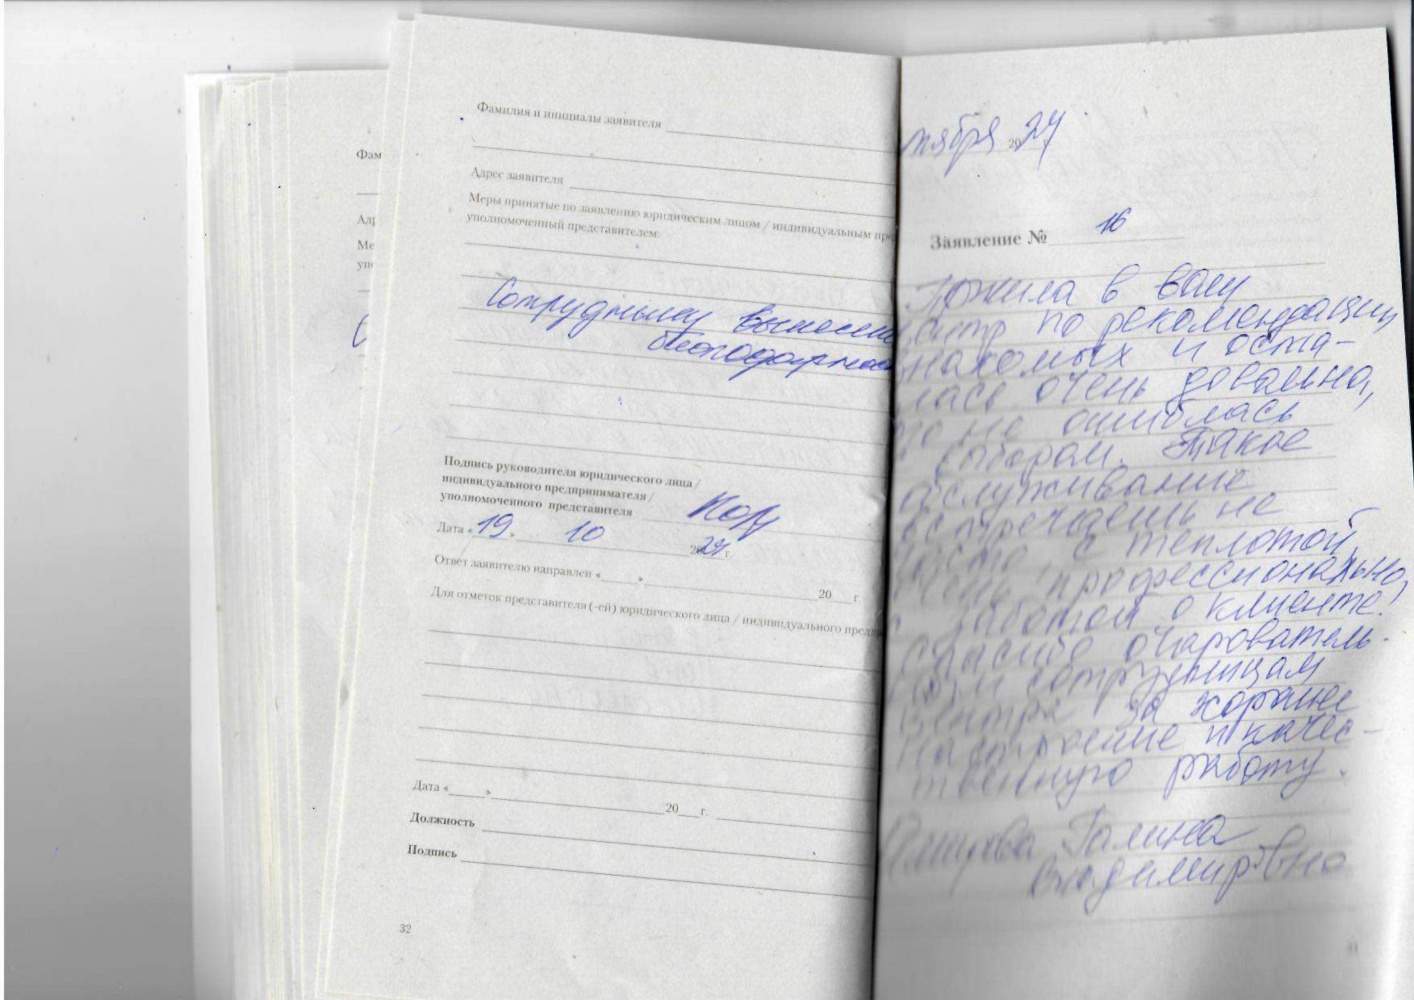 Фам
Адр
Ме
упо
Фамилия и инициалы заявителя
Адрес заявителя
Меры принятые по заявлению юридическим лицом / индивидуальным пре
уполномоченный представителем:
Сотруднику вынесени
благодарнос
Подпись руководителя юридического лица /
индивидуального предпринимателя /
уполномоченного представителя
Дата « 19 » 10 2024 г.
Ответ заявителю направлен «____» 20___ г.
Для отметок представителя (-ей) юридического лица / индивидуального предп
Дата «____» 20___ г.
Должность
Подпись
32
тября 2024
Заявление № 16
в вашу
центр по рекомендации
знакомых и оста-
лась очень довольна,
что не ошиблась
с выбором. Такое
обслуживание
встречаешь не
часто с теплотой,
очень профессионально,
с заботой о клиенте!
Спасибо очарователь-
ным сотрудницам
центра за хорошее
настроение и качес-
твенную работу.
Галина
Владимировна